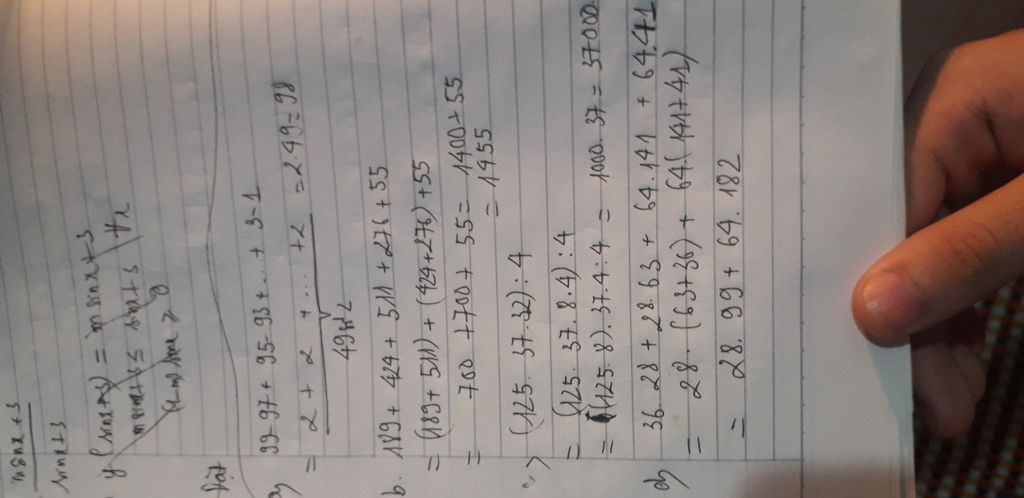 msinx+3
sinx+3
y(sinx+3) = msinx+3
msinx+3 ≤ sinx+3 ∀x
a) 99-97+ 95-93+...+ 3-1
= 2 + 2 + ... +2 = 2.49=98
49 số 2
b. 189+ 424 + 511 + 276 + 55
= (189+ 511) + (424+276) +55
= 700 +700 + 55 = 1400 + 55
= 1455
c) (125. 37. 32) : 4
= (125. 37. 8.4) : 4
= (125.8).37.4:4 = 1000.37 = 37000
d) 36.28 + 28.63 + 64.141 + 64.41
= 28. (63+36) + 64.(141+41)
= 28.99 + 64. 182